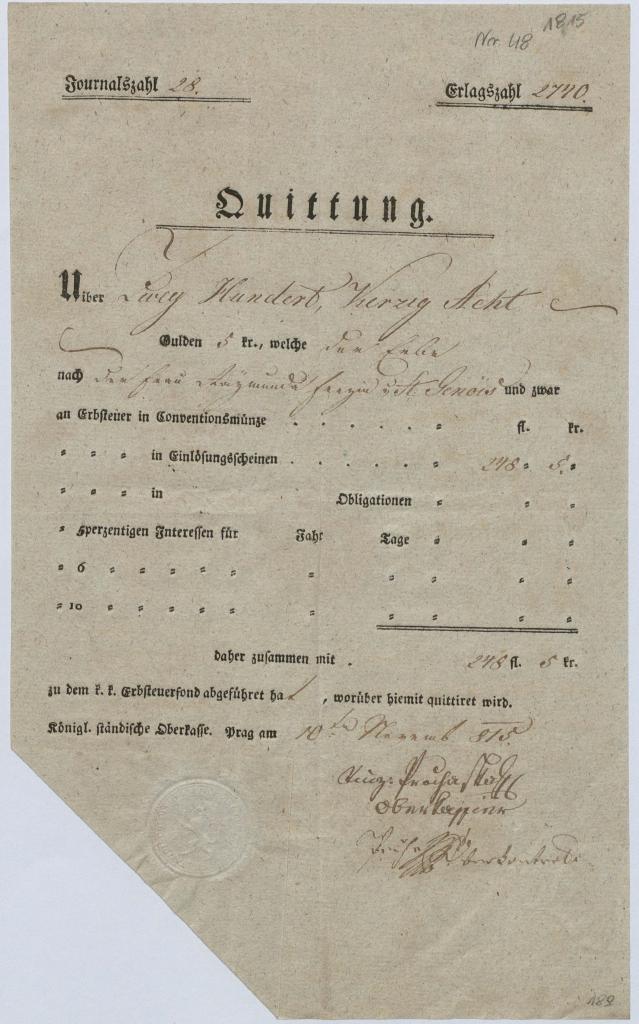 Nro. 48 1815
Journalszahl 28.
Erlagszahl 2740.
Quittung.
Uiber Zwey Hundert, Vierzig Acht
Gulden 5 kr., welche der Erbe
nach der Frau Raymunda v. St. Genois und zwar
an Erbsteuer in Conventionsmünze . . . . . " fl. kr.
" " " in Einlösungsscheinen . . . . . " 248 " 5. "
" " " in Obligationen " " "
" 5perzentigen Interessen für Jahr Tage " " "
" 6 " " " " " " " " "
" 10 " " " " " " " " "
daher zusammen mit . 248 fl. 5 kr.
zu dem k. k. Erbsteuerfond abgeführet hat, worüber hiemit quittiret wird.
Königl. ständische Oberkasse. Prag am 10ten Novemb 815.
Prochaska
Oberkassier
Oberkontrol
189